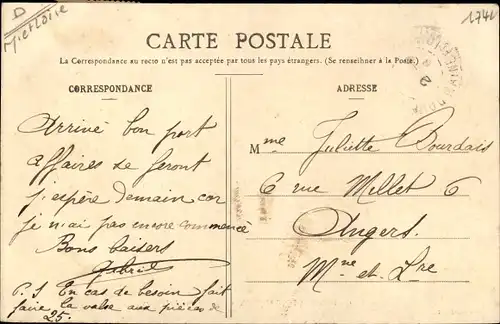 D
M et Loire
1741
CARTE POSTALE
La Correspondance au recto n'est pas acceptée par tous les pays étrangers. (Se renseigner à la Poste.)
CORRESPONDANCE
Arrivé bon port
affaires se feront
j'espère demain car
je n'ai pas encore commencé
Bons baisers
Gabriel
P.S En cas de besoin fait
faire la valse aux pièces de
25.
ADRESSE
Mme Juliette Bourdais
6 rue Millet 6
Angers.
Mne et Lre